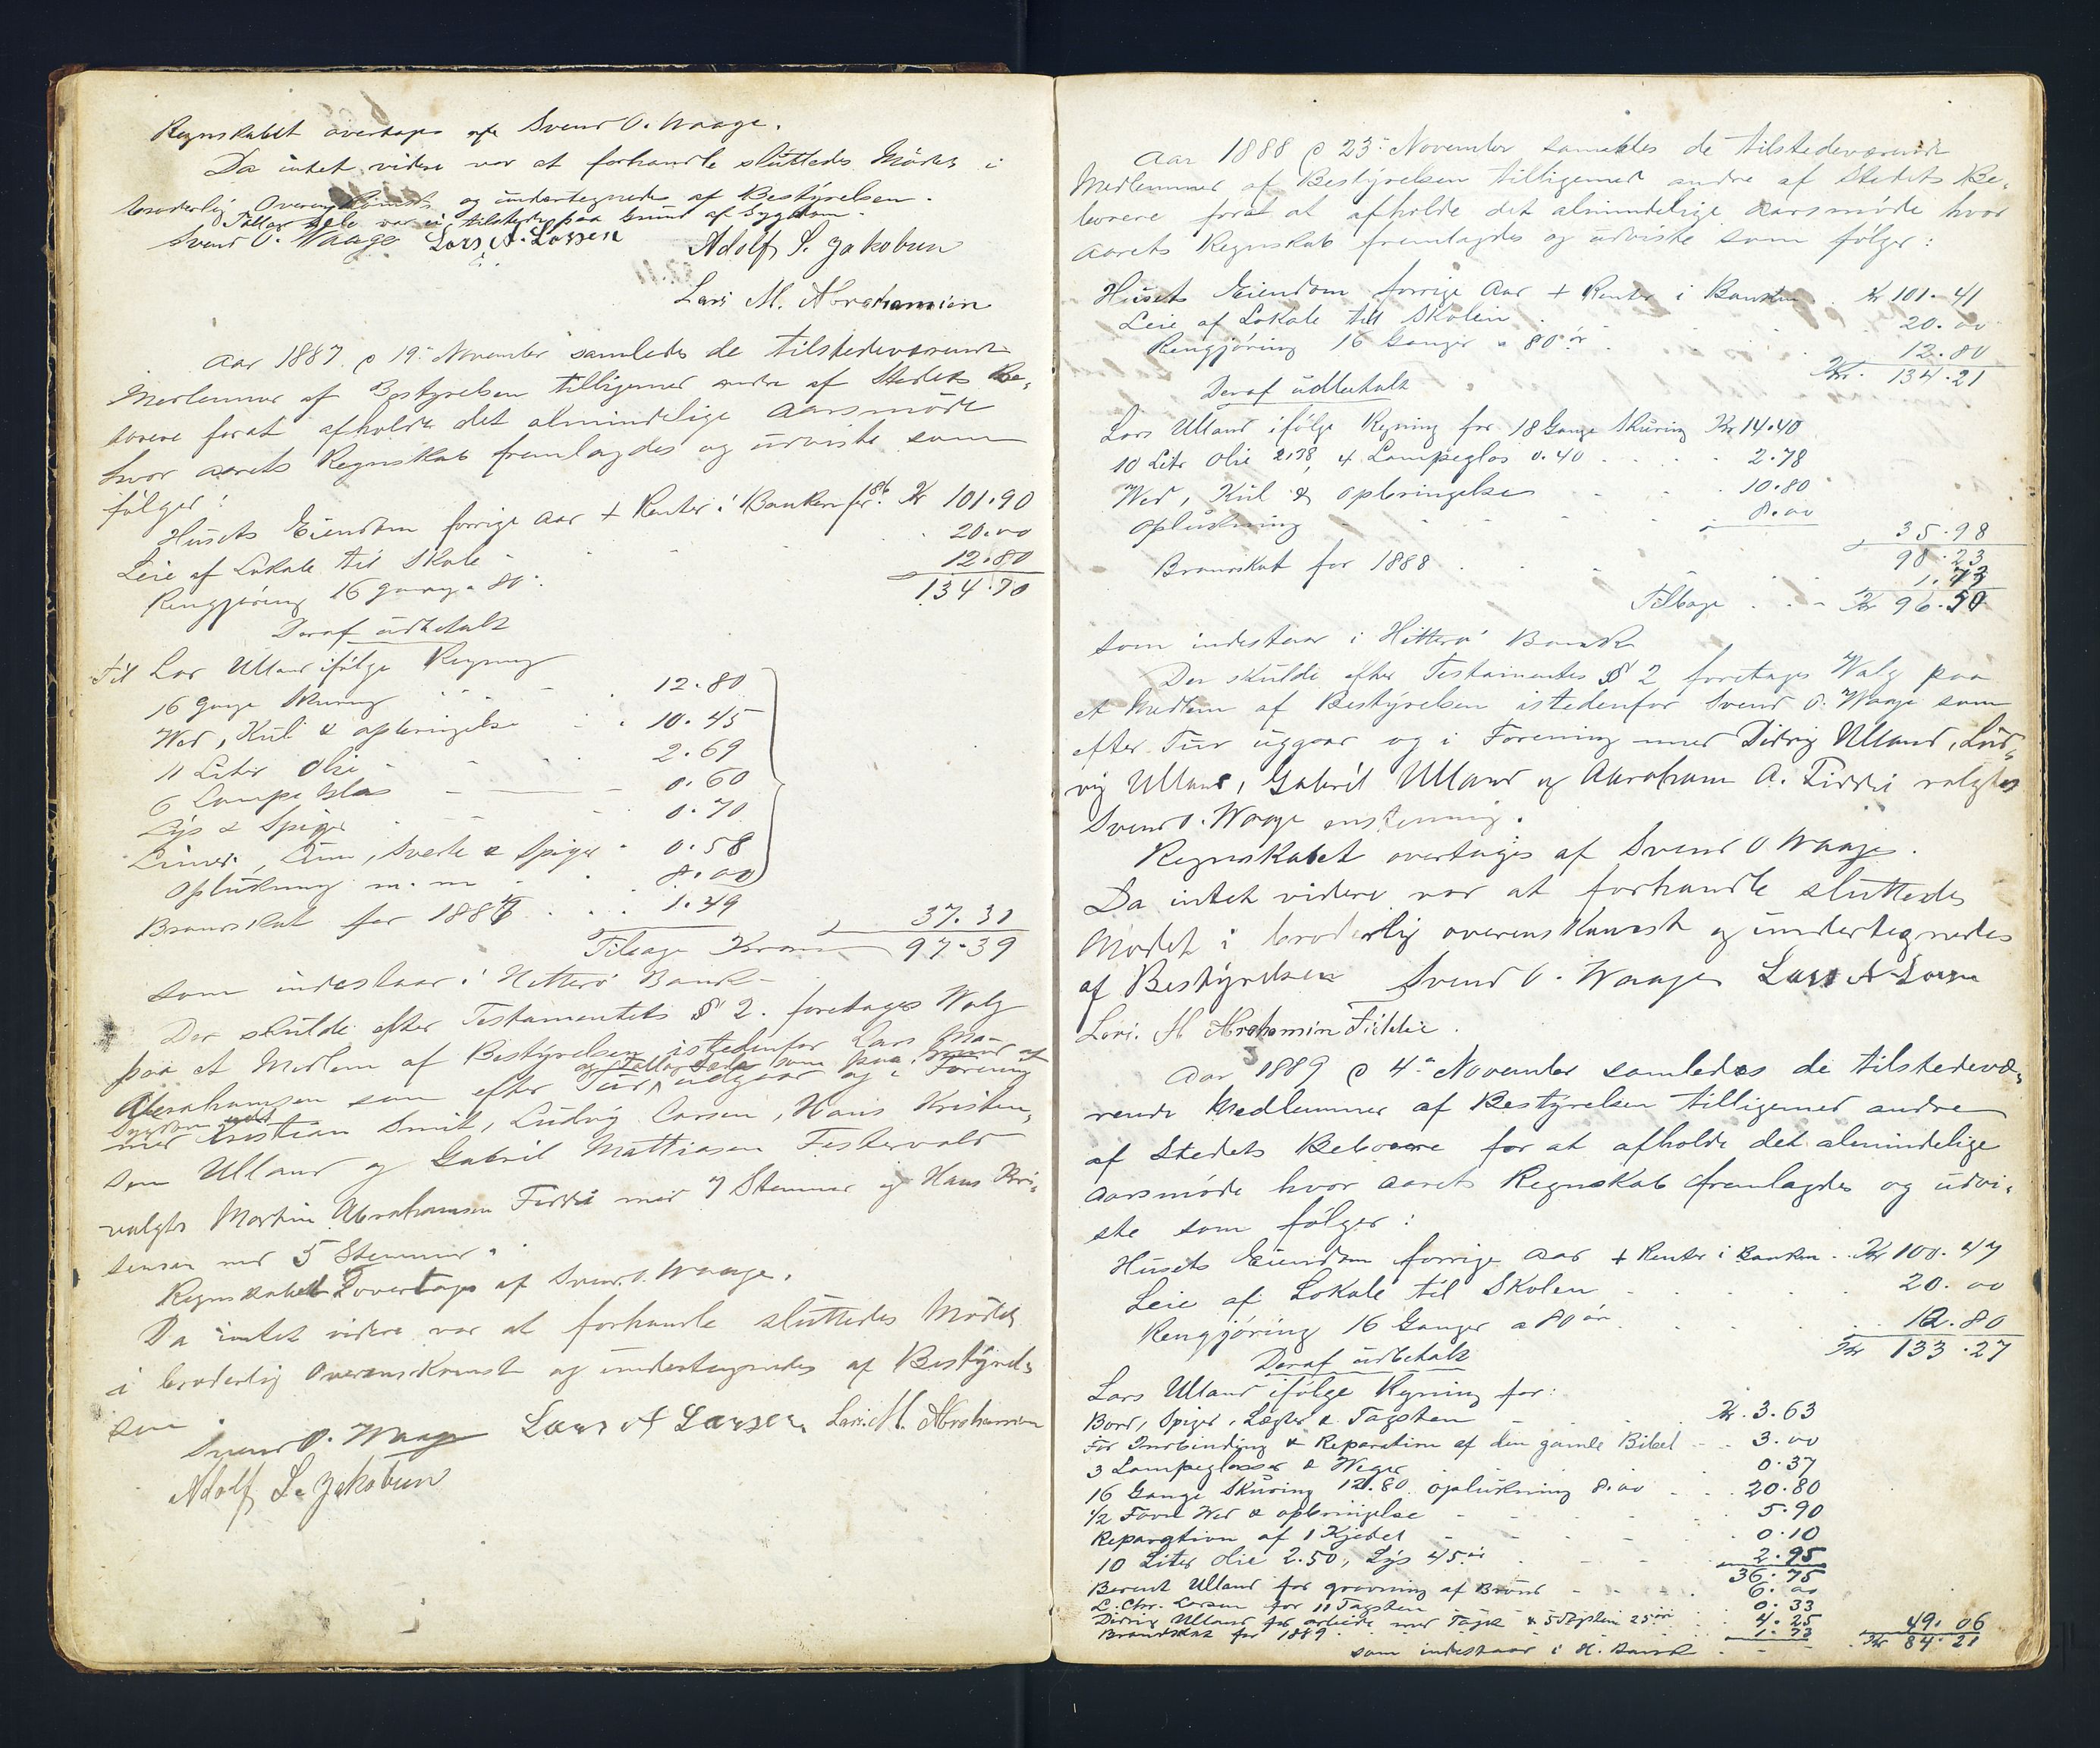 Regnskabet overtages af Svend O. Waage.
Da intet videre var at forhandle sluttedes Mödet i
broderlig Overenskomst og undertegnedes af Bestyrelsen.
Tallar Sele var ei tilstede paa Grund af Sygdom.
Svend O. Waage Lars A. Larsen Adolf S. Jakobsen
Lars M. Abrahamsen
Aar 1887 d 19de November samledes de tilstedeværende
Medlemmer af Bestyrelsen tilligemed andre af Stedets Be-
boere forat afholde det almindelige Aarsmöde
hvor aarets Regnskab fremlagdes og udviste som
fölger:
Husets Eiendom forrige Aar + Renter i Banken for 86. Kr 101.90
Leie af Lokale til Skole 20.00
Rengjöring 16 gange a 80. 12.80
134.70
Deraf udbetalt
Til Lars Ulland ifölge Regning
16 gange Skuring 12.80
Wed, Kul & opbringelse 10.45
11 Liter Olie 2.69
6 Lampe Glas 0.60
Lys & Spiger 0.70
Linier, Lim, Sverte & Spiger 0.58
Oplukning m. m 8.00
Brandskat for 1887 1.49
37.31
Tilbage Kroner 97.39
som indestaar i Hitterö Bank
Der skulde efter Testamentets § 2. foretages Walg
paa et Medlem af Bestyrelsen istedenfor Lars M.
og Tallar Sele som paa Grund af
Abrahamsen som efter Tur udgaar og i Forening
Sygdom
med Kristian Smit, Ludvig Larsen, Hans Kristen-
sen Ulland og Gabriel Mattiasen Festervold
valgtes Martin Abrahamsen Fidde med 7 Stemmer og Hans Kri-
stensen med 5 Stemmer.
Regnskabet overtages af Svend O. Waage.
Da intet videre var at forhandle sluttedes Mödet
i broderlig Overenskomst og undertegnedes af Bestyrel-
sen
Svend O. Waage Lars A Larsen Lars M. Abrahamsen
Adolf S. Jakobsen
Aar 1888 d 23de November samledes de tilstedeværende
Medlemmer af Bestyrelsen tilligemed andre af Stedets Be-
boere forat at afholde det almindelige aarsmöde hvor
aarets Regnskab fremlagdes og udviste som fölger:
Husets Eiendom forrige Aar + Renter i Banken Kr 101.41
Leie af Lokale til Skolen 20.00
Rengjöring 16 Ganger a 80 ör 12.80
Kr. 134.21
Deraf udbetalt
Lars Ulland ifölge Regning for 18 Gange Skuring Kr 14.40
10 Liter Olie 2.38, 4 Lampeglas 0.40 2.78
Wed, Kul & opbringelse 10.80
Oplukning 8.00
35.98
98.23
Brandskat for 1888 1.73
Tilbage Kr 96.50
som indestaar i Hitterö Bank
Der skulde efter Testamentes § 2 foretages Walg paa
et Medlem af Bestyrelsen istedenfor Svend O. Waage som
efter Tur udgaar og i Forening med Didrig Ulland, Lud-
vig Ulland, Gabriel Ulland og Abraham A. Fidde valgtes
Svend O. Waage enstemmig.
Regnskabet overtages af Svend O Waage.
Da intet videre var at forhandle sluttedes
Mödet i broderlig overenskomst og undertegnedes
af Bestyrelsen Svend O. Waage Lars A Larsen
Lars. M Abrahamsen Fidde.
Aar 1889 d 4de November samledes de tilstedevæ-
rende Medlemmer af Bestyrelsen tilligemed andre
af Stedets Beboere for at afholde det almindelige
aarsmöde hvor aarets Regnskab fremlagdes og udvi-
ste som fölger:
Husets Eiendom forrige aar + Renter i Banken Kr 100.47
Leie af Lokale til Skolen 20.00
Rengjöring 16 Ganger a 80 ör 12.80
Kr 133.27
Deraf udbetalt
Lars Ulland ifölge Regning for:
Bord, Spiger, Lægter & Tagsten Kr. 3.63
For Indbinding & Reparation af den gamle Bibel 3.00
3 Lampeglasser & Weger 0.37
16 Gange Skuring 12.80 oplukning 8.00 20.80
1/2 Favn Wed & opbringelse 5.90
Reparation af 1 Kjedel 0.10
10 Liter Olie 2.50, Lys 45 ör 2.95
36.75
Berent Ulland for gravning af Brönd 6.00
L. Chr. Larsen for 11 Tagsten 0.33
Didrig Ulland for arbeide med Taget & 5 Tagsten 25 öre 4.25
Brandskat for 1889 1.73
49.06
som indestaar i H. Bank Kr 84.21